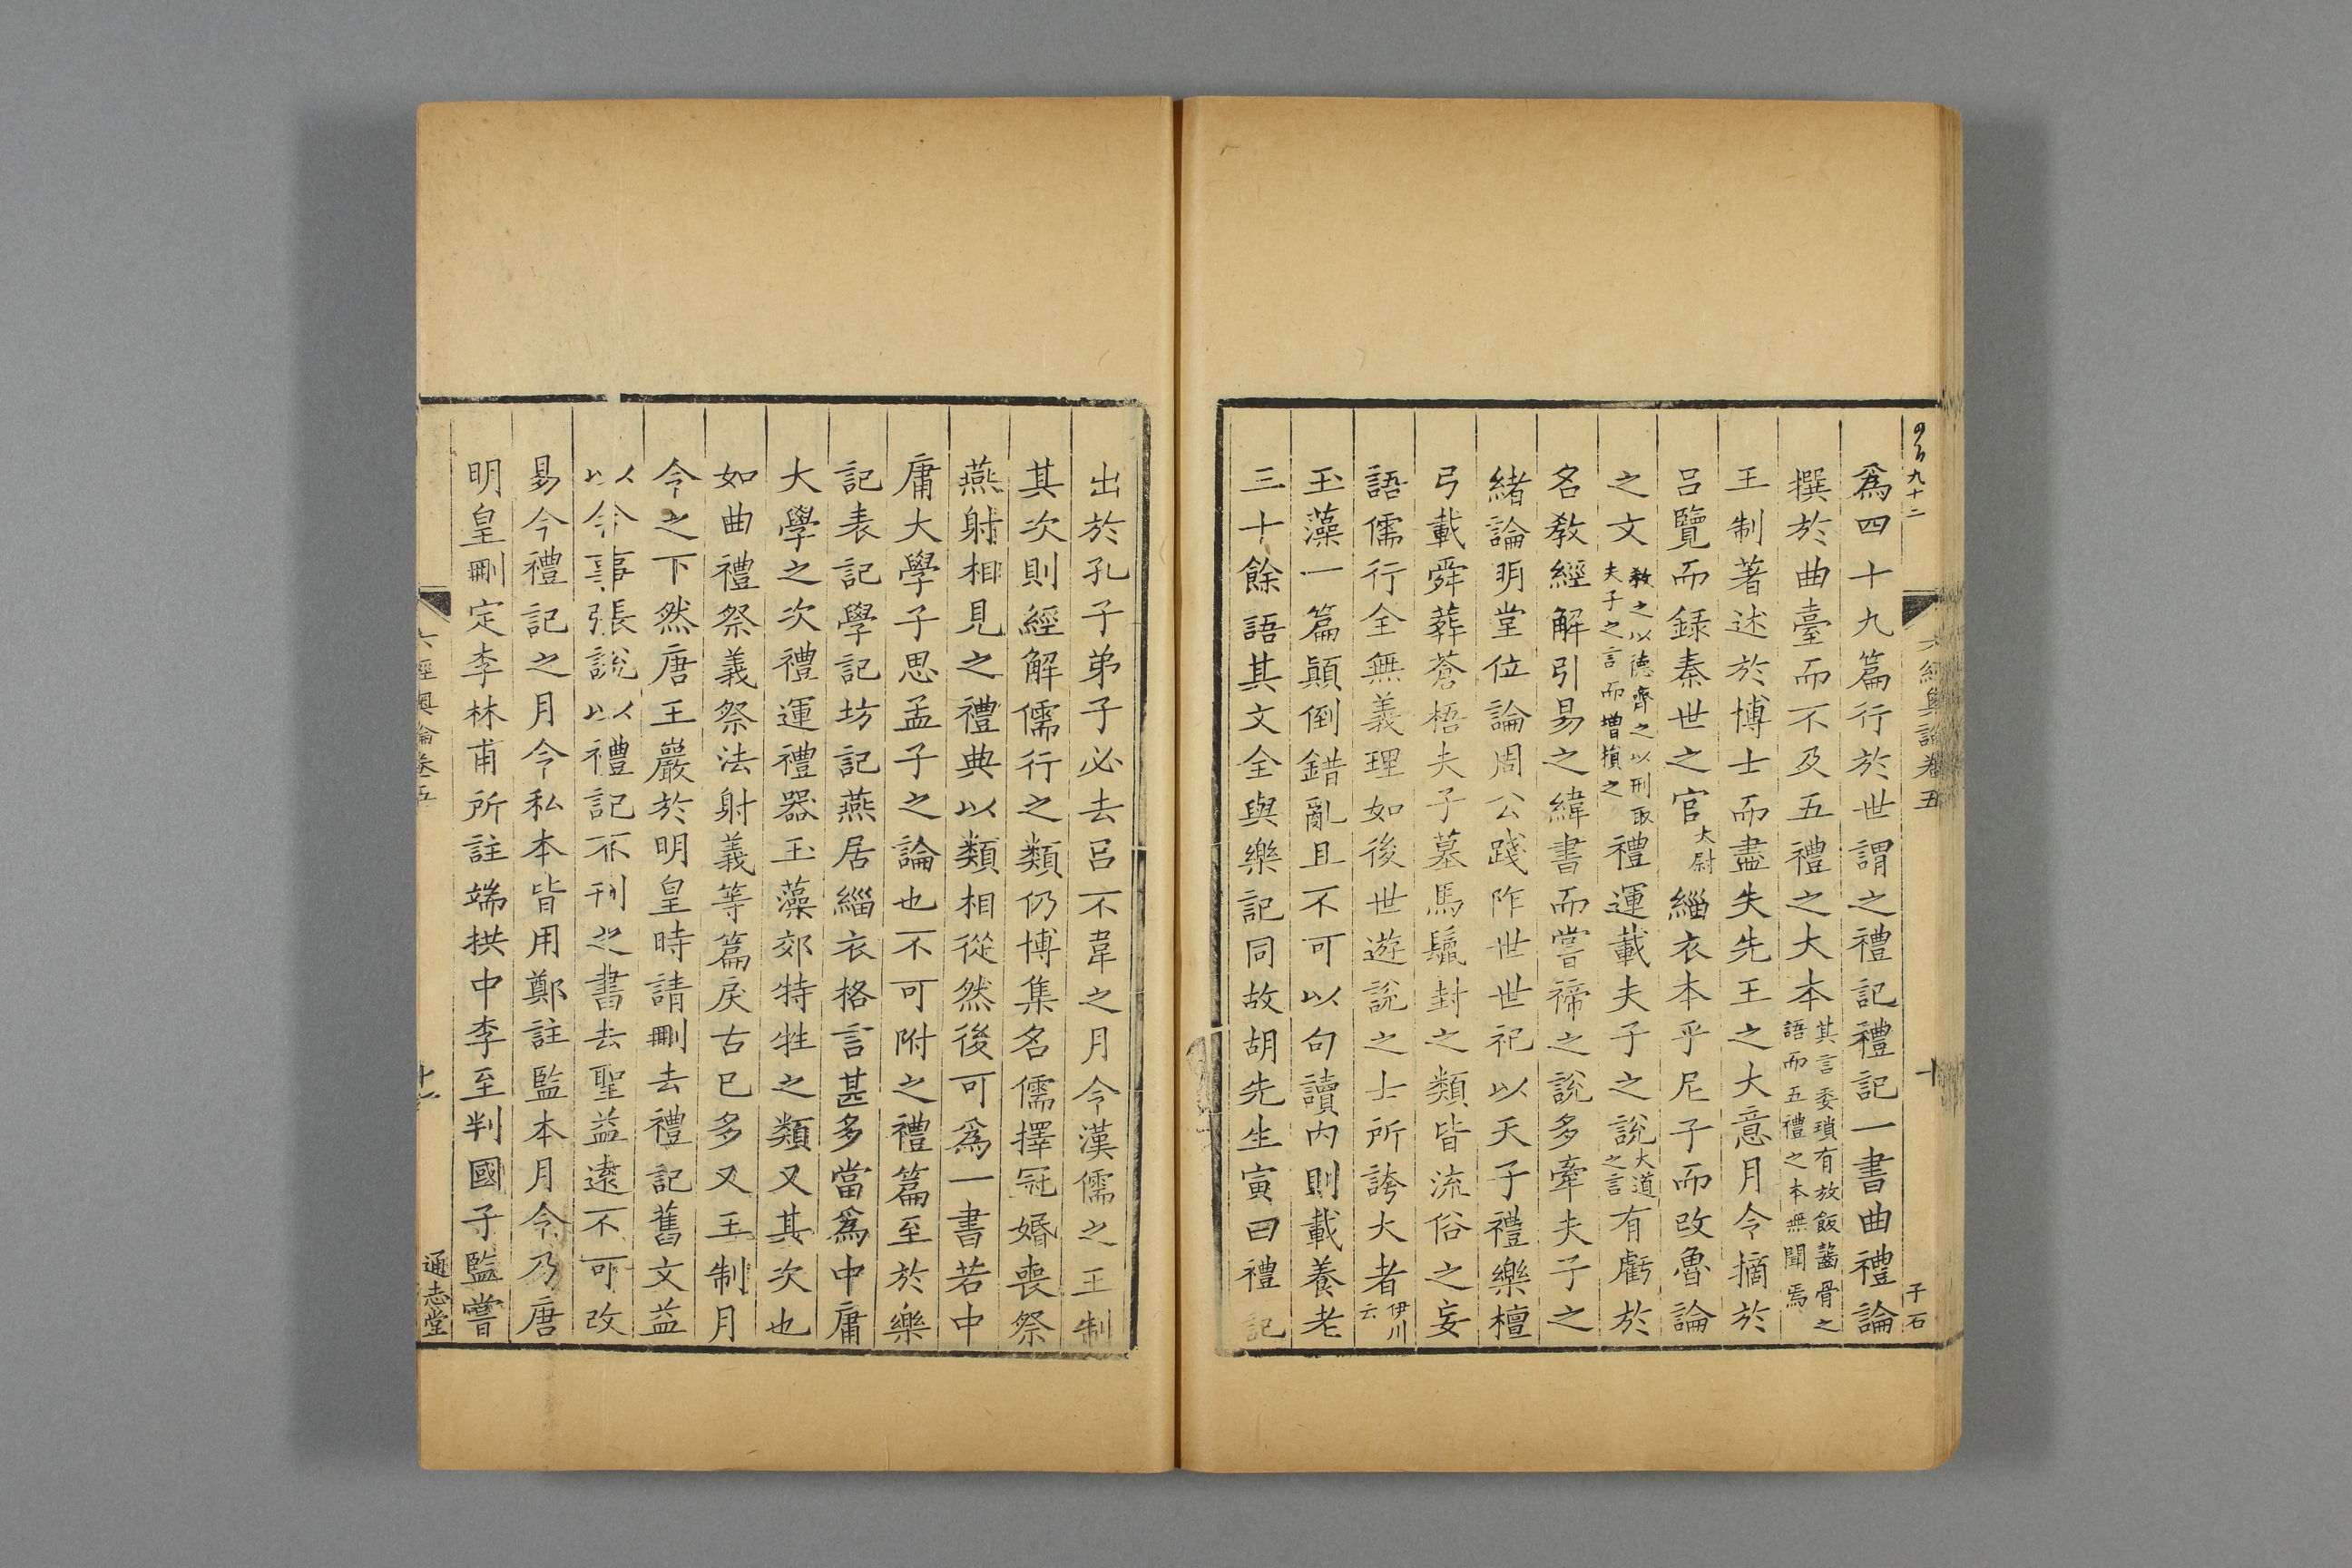 九十二
六經奧論卷五
十
子石
爲四十九篇行於世謂之禮記禮記一書曲禮論
撰於曲臺而不及五禮之大本其言委瑣有放飯齧骨之語而五禮之本無聞焉
王制著述於博士而盡失先王之大意月令摘於
呂覽而録秦世之官太尉緇衣本乎尼子而改魯論
之文教之以德齊之以刑取夫子之言而增損之禮運載夫子之說大道之言有虧於
名教經解引易之緯書而嘗禘之說多牽夫子之
緒論明堂位論周公踐阼世世祀以天子禮樂檀
弓載舜葬蒼梧夫子墓馬鬛封之類皆流俗之妄
語儒行全無義理如後世遊說之士所誇大者伊川云
玉藻一篇顛倒錯亂且不可以句讀內則載養老
三十餘語其文全與樂記同故胡先生寅曰禮記
出於孔子弟子必去呂不韋之月令漢儒之王制
其次則經解儒行之類仍博集名儒擇冠婚喪祭
燕射相見之禮典以類相從然後可爲一書若中
庸大學子思孟子之論也不可附之禮篇至於樂
記表記學記坊記燕居緇衣格言甚多當爲中庸
大學之次禮運禮器玉藻郊特牲之類又其次也
如曲禮祭義祭法射義等篇戾古已多又王制月
令之下然唐王巖於明皇時請刪去禮記舊文益
以今事張說以禮記不刊之書去聖益遠不可改
易今禮記之月令私本皆用鄭註監本月令乃唐
明皇刪定李林甫所註端拱中李至判國子監嘗
六經奧論卷五
通志堂